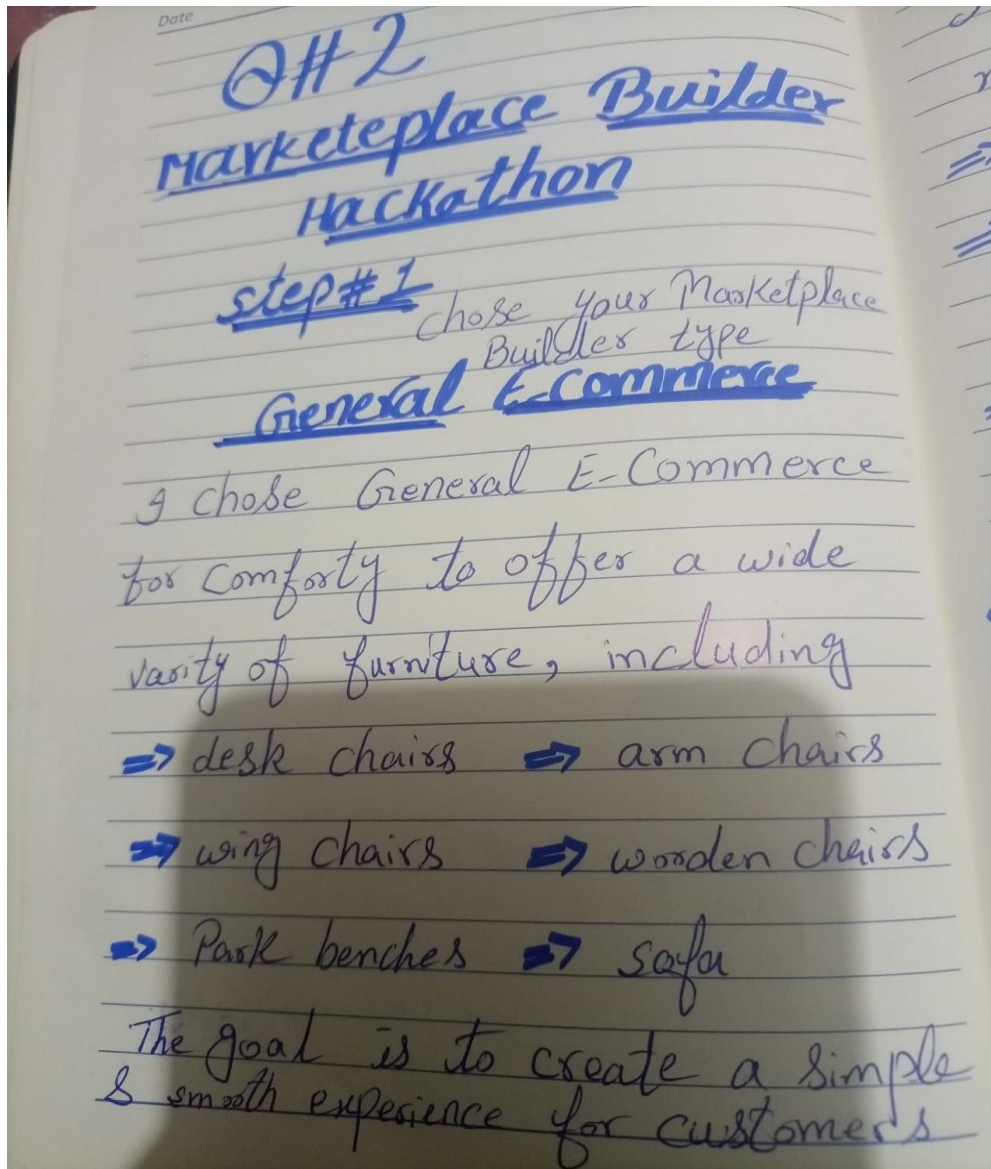 Date
Q#2
Marketeplace Builder
Hackathon
step#1
Chose your Marketplace
Builder type
General E-Commerce
I chose General E-Commerce
for comforty to offer a wide
varity of furniture, including
⇒ desk chairs ⇒ arm chairs
⇒ wing chairs ⇒ wooden chairs
⇒ Park benches ⇒ sofa
The goal is to create a simple
& smooth experience for customers